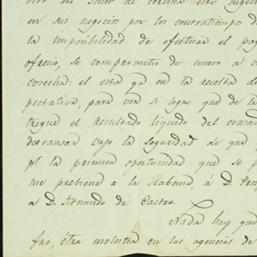 en sus negocios por los contratiempos
la imposibilidad de efectuar el pag
ofrecio, se compromete de nuevo a
cosecha: el esta ya en la
pectativa, para ver si logra que de la
tregue el resultado liquido del
descansar vajo la seguridad de que
pr. la primera oportunidad que se p
me previene a la Habana á D.
a D. Fernando de Castro.
Nada hay que
fno, ótra molestia en las agencias de